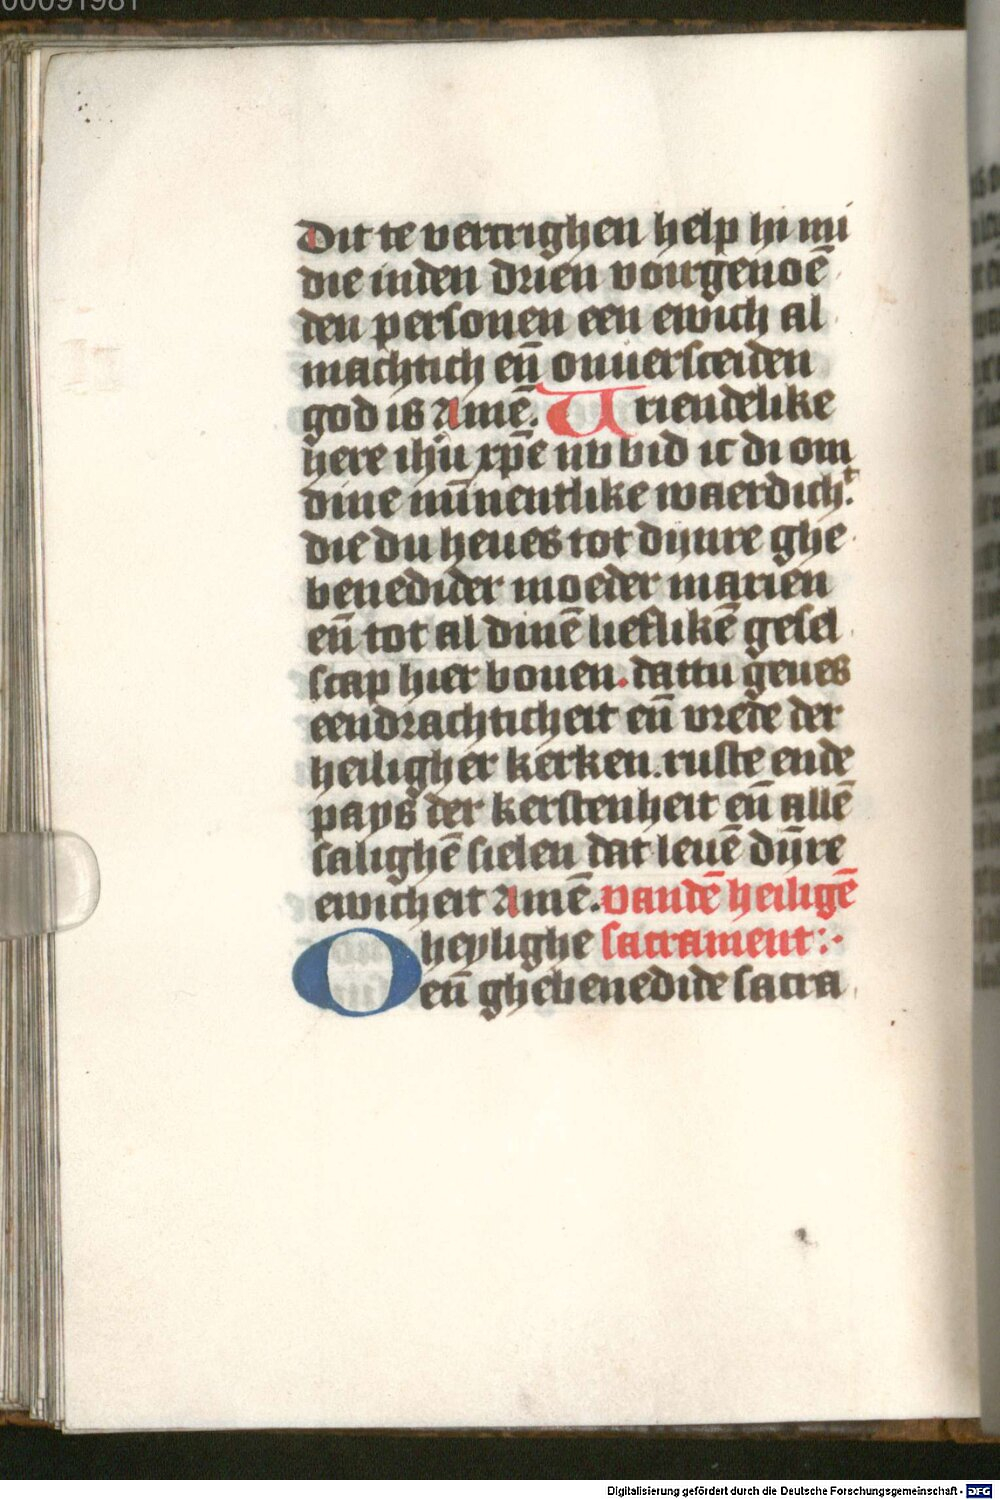 00091981
Dit te vercrighen help hi mi
die inden drien vourgenoē
den personen een ewich al
machtich eñ onuersceiden
god is Amē. Uriendelike
here ihū xpē nu bid ic di om
dine mīnentlike waerdich.t
die du heues tot dijnre ghe
benedider moeder marien
eñ tot al dinē lieflikē gesel
scap hier bouen. dattu geues
eendrachticheit eñ vrede der
heiligher kerken. ruste ende
pays der kerstenheit eñ allē
salighē sielen dat leuē dijre
ewicheit Amē. vandē heiligē
O heylighe sacrament:·
eñ ghebenedide sacra
Digitalisierung gefördert durch die Deutsche Forschungsgemeinschaft - DFG